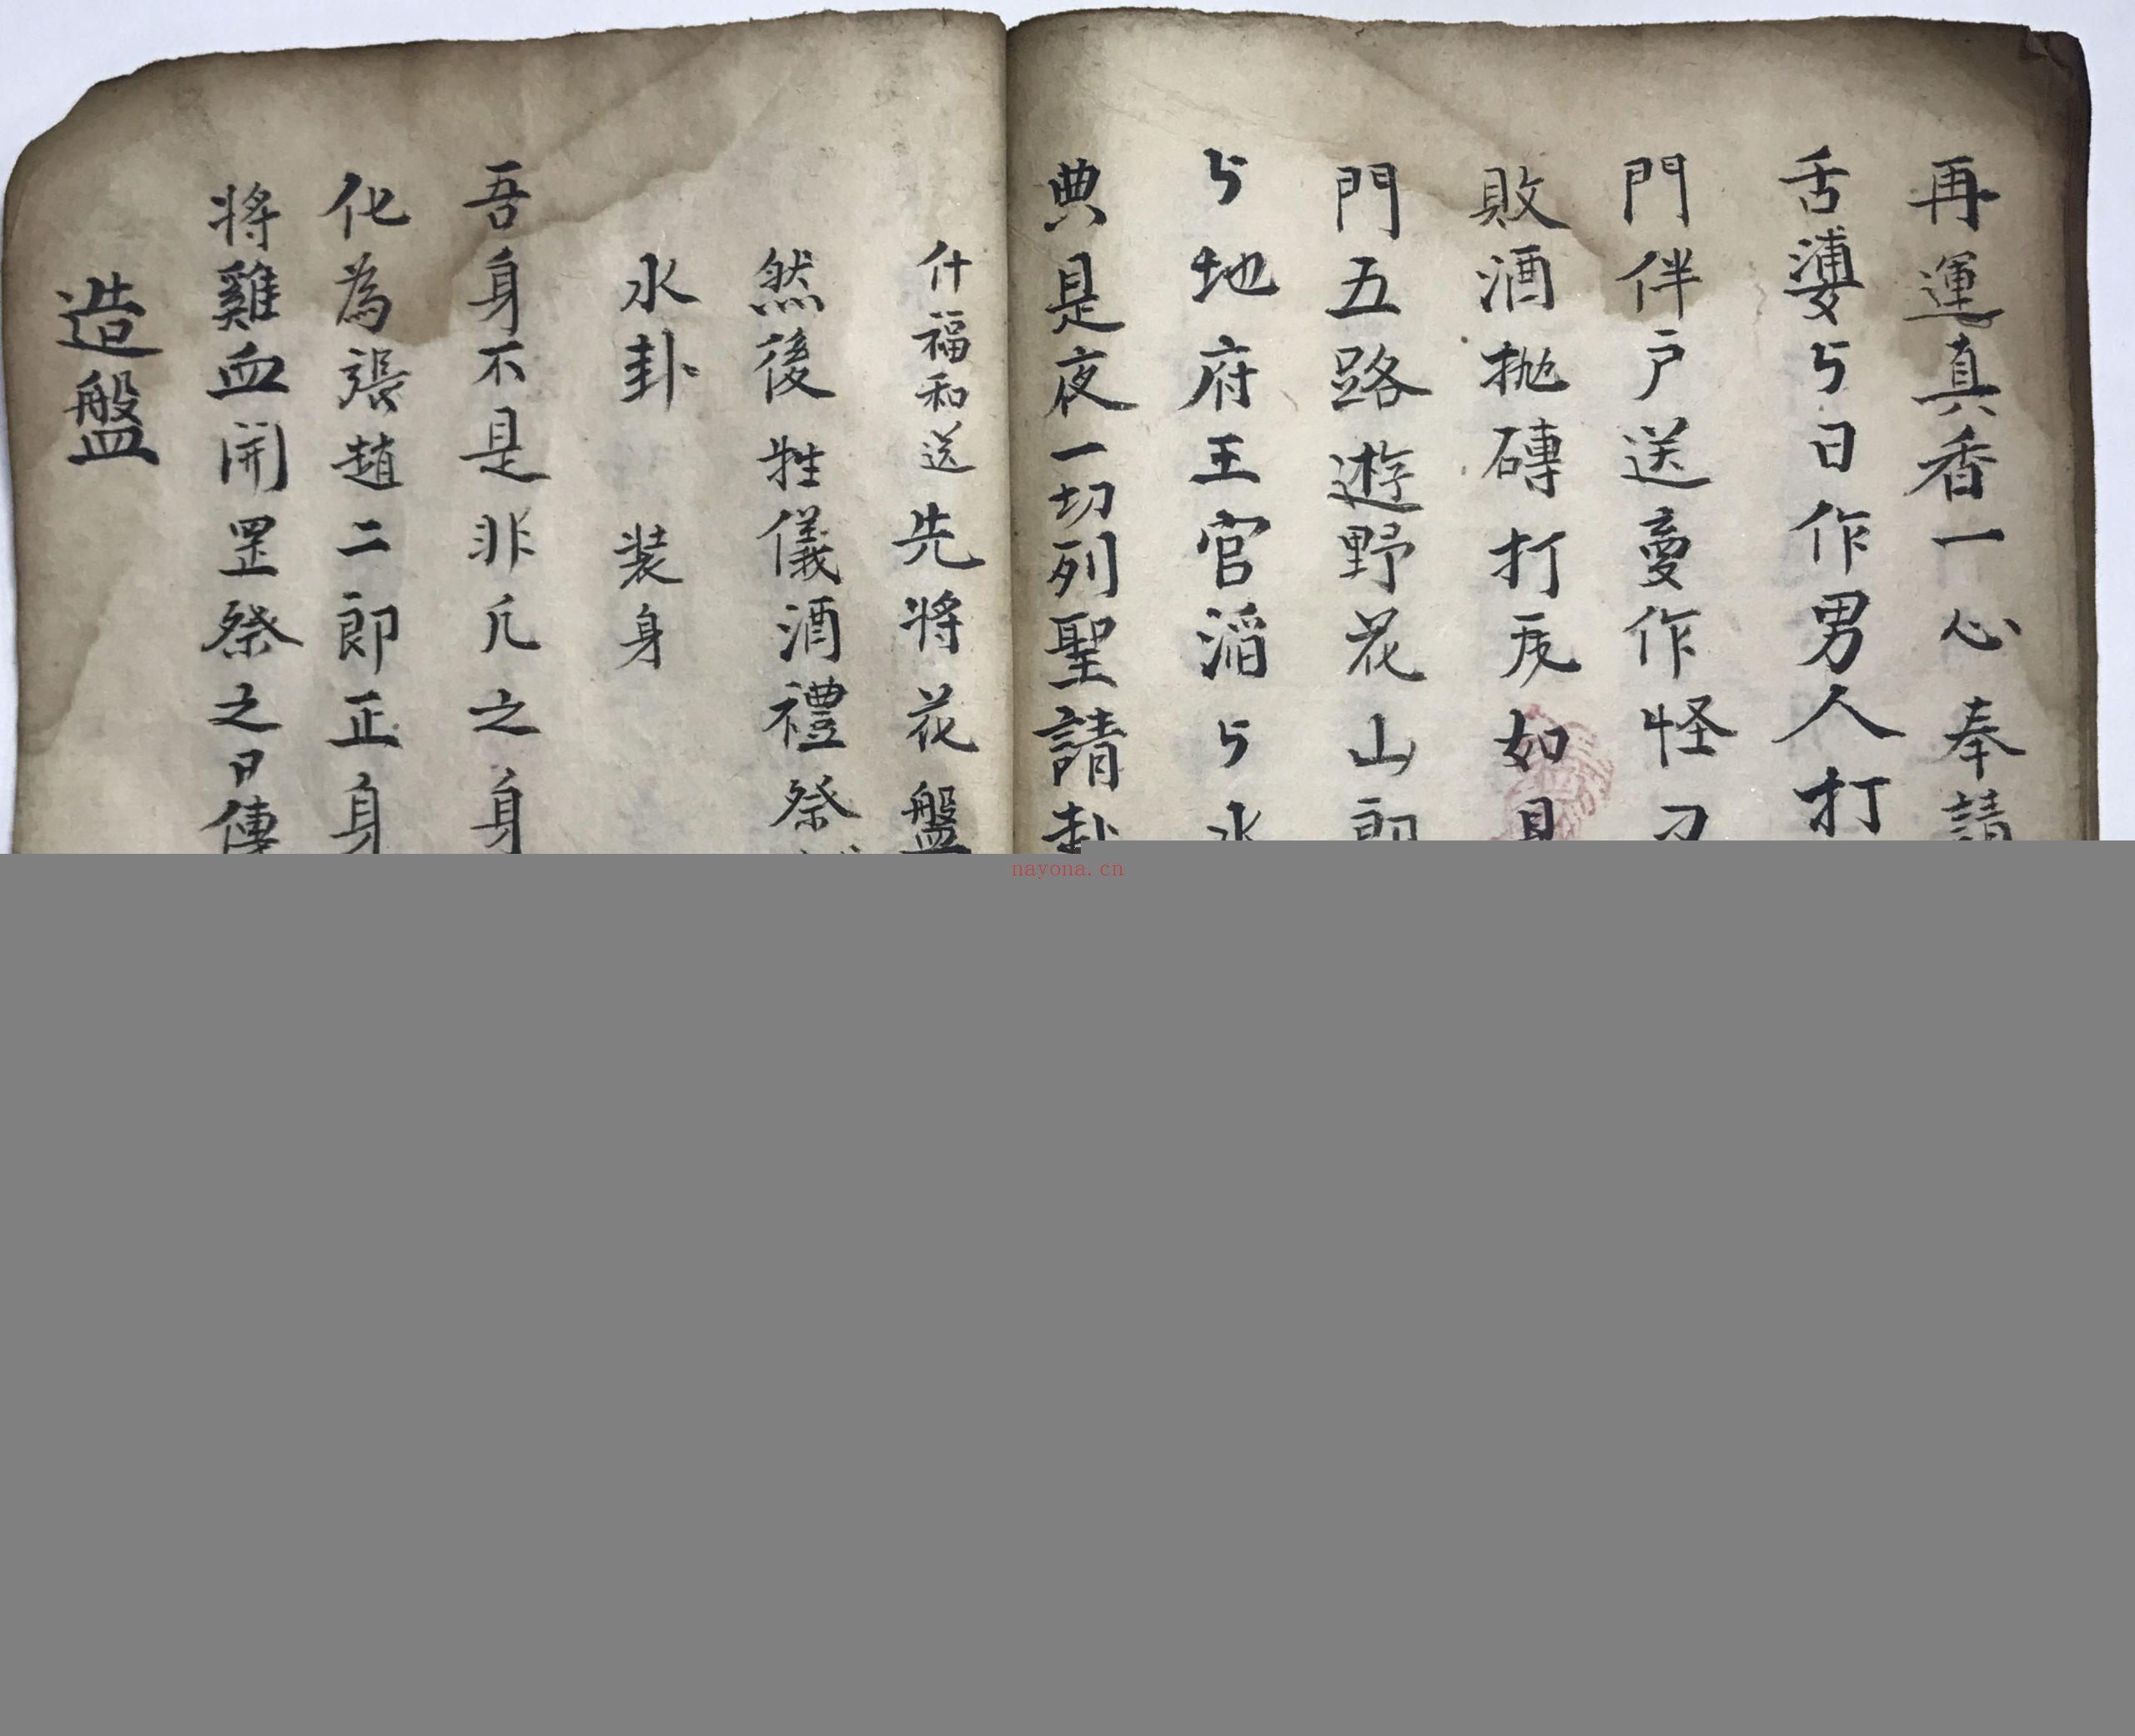 再運真香一心奉請
舌婆ㄣ日作男人打
門伴户送夢作怪刁
敗酒拋磚打瓦如
門五路遊野花山
ㄣ地府王官滔ㄣ水
典是夜一切列聖請卦
什福和送先將花盤
然後牲儀酒禮祭
水卦 装身
吾身不是非凡之身
化為張趙二郎正身
將雞血開罡祭之日傳
造盤
nayona.cn